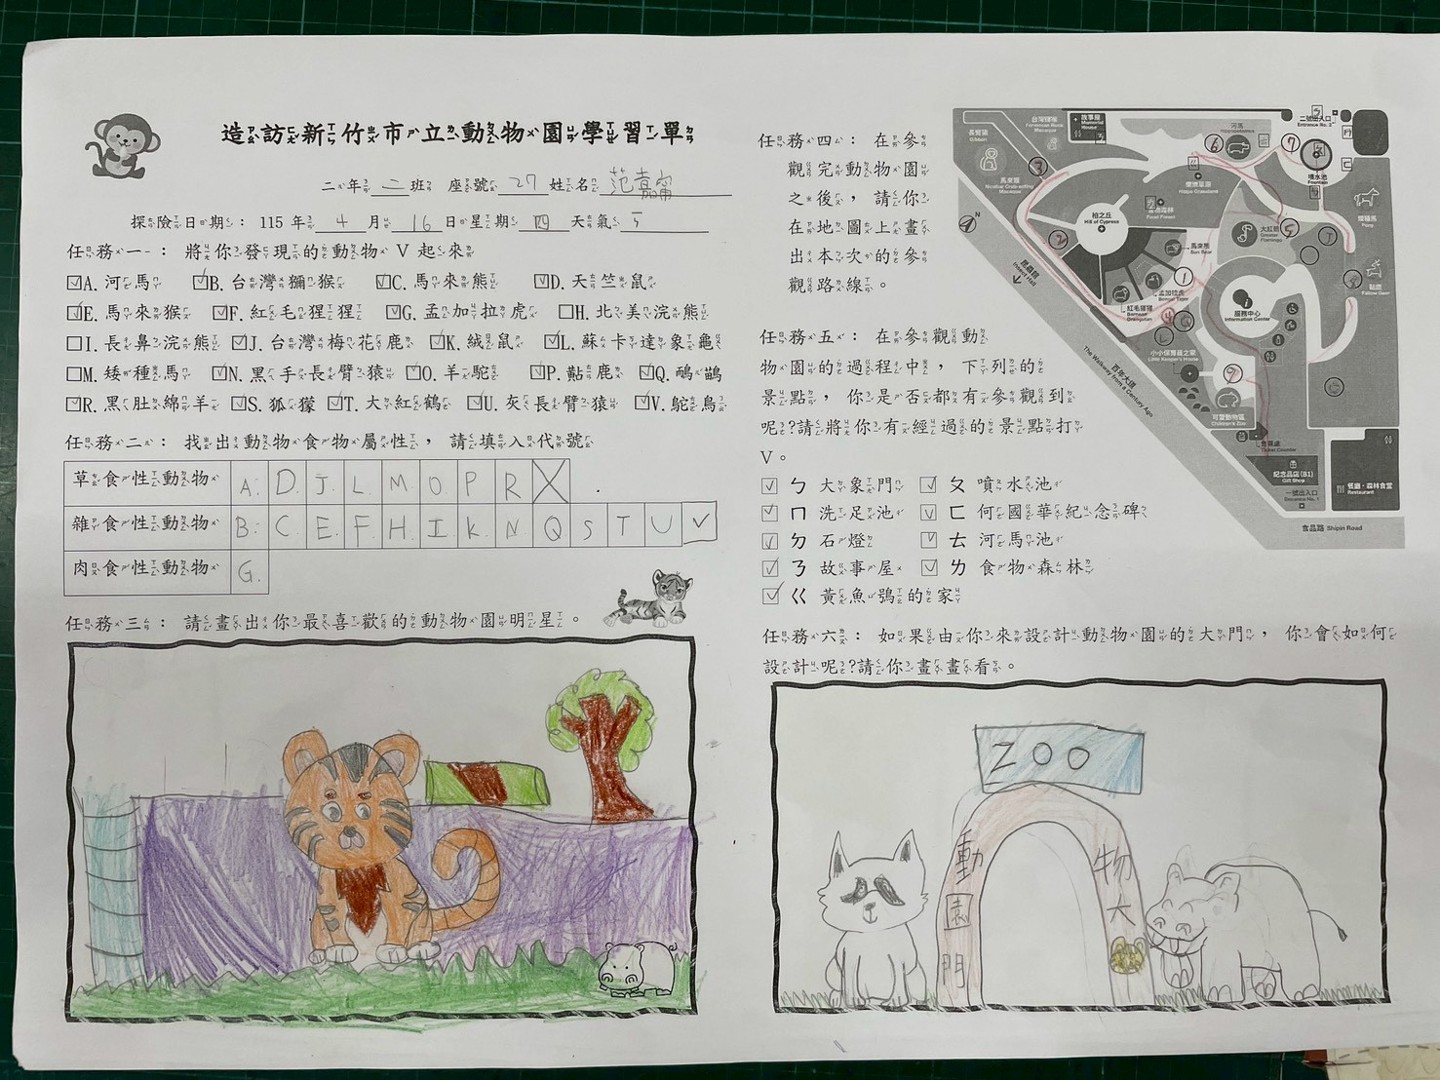 造訪新竹市立動物園學習單
二年二班 座號 27 姓名 范嘉甯
探險日期：115年4月16日星期四 天氣
任務一：將你發現的動物V起來
☑A.河馬 ☑B.台灣獼猴 ☑C.馬來熊 ☑D.天竺鼠
☑E.馬來猴 ☑F.紅毛猩猩 ☑G.孟加拉虎 □H.北美浣熊
□I.長鼻浣熊 ☑J.台灣梅花鹿 ☑K.絨鼠 ☑L.蘇卡達象龜
□M.矮種馬 ☑N.黑手長臂猿 ☑O.羊駝 ☑P.黇鹿 ☑Q.鴯鶓
☑R.黑肚綿羊 ☑S.狐獴 ☑T.大紅鶴 ☑U.灰長臂猿 ☑V.鴕鳥
任務二：找出動物食物屬性，請填入代號
草食性動物 A. D. J. L. M O. P R
雜食性動物 B. C. E. F. H I K. N Q S T U V
肉食性動物 G.
任務三：請畫出你最喜歡的動物園明星。
任務四：在參
觀完動物園
之後，請你
在地圖上畫
出本次的參
觀路線。
長臂猿
台灣獼猴
Formosan Rock Macaque
故事屋
河馬
二號出入口
Entrance No. 2
馬來猴
柏之丘
Hill of Cypress
噴水池
Fountain
食物森林
Food Forest
馬來熊
Sun Bear
大紅鶴
Greater Flamingo
矮種馬
Pony
黇鹿
Fallow Deer
N
昆蟲館
Insect Hall
孟加拉虎
Bengal Tiger
紅毛猩猩
Bornean Orangutan
服務中心
Information Center
小小保育員之家
Little Keeper's House
百年大道
The Walkway from a Century Ago
可愛動物區
Children's Zoo
售票處
Ticket Counter
紀念品店 (B1)
Gift Shop
一號出入口
Entrance No. 1
餐廳・森林食堂
Restaurant
食品路 Shipin Road
① ② ③ ④ ⑤ ⑥ ⑦ ⑨
任務五：在參觀動
物園的過程中，下列的
景點，你是否都有參觀到
呢?請將你有經過的景點打
V。
☑ㄅ 大象門 ☑ㄆ 噴水池
☑ㄇ 洗足池 ☑ㄈ 何國華紀念碑
☑ㄉ 石燈 ☑ㄊ 河馬池
☑ㄋ 故事屋 ☑ㄌ 食物森林
☑ㄍ 黃魚鴞的家
任務六：如果由你來設計動物園的大門，你會如何
設計呢?請你畫畫看。
ZOO
動物
園大
門